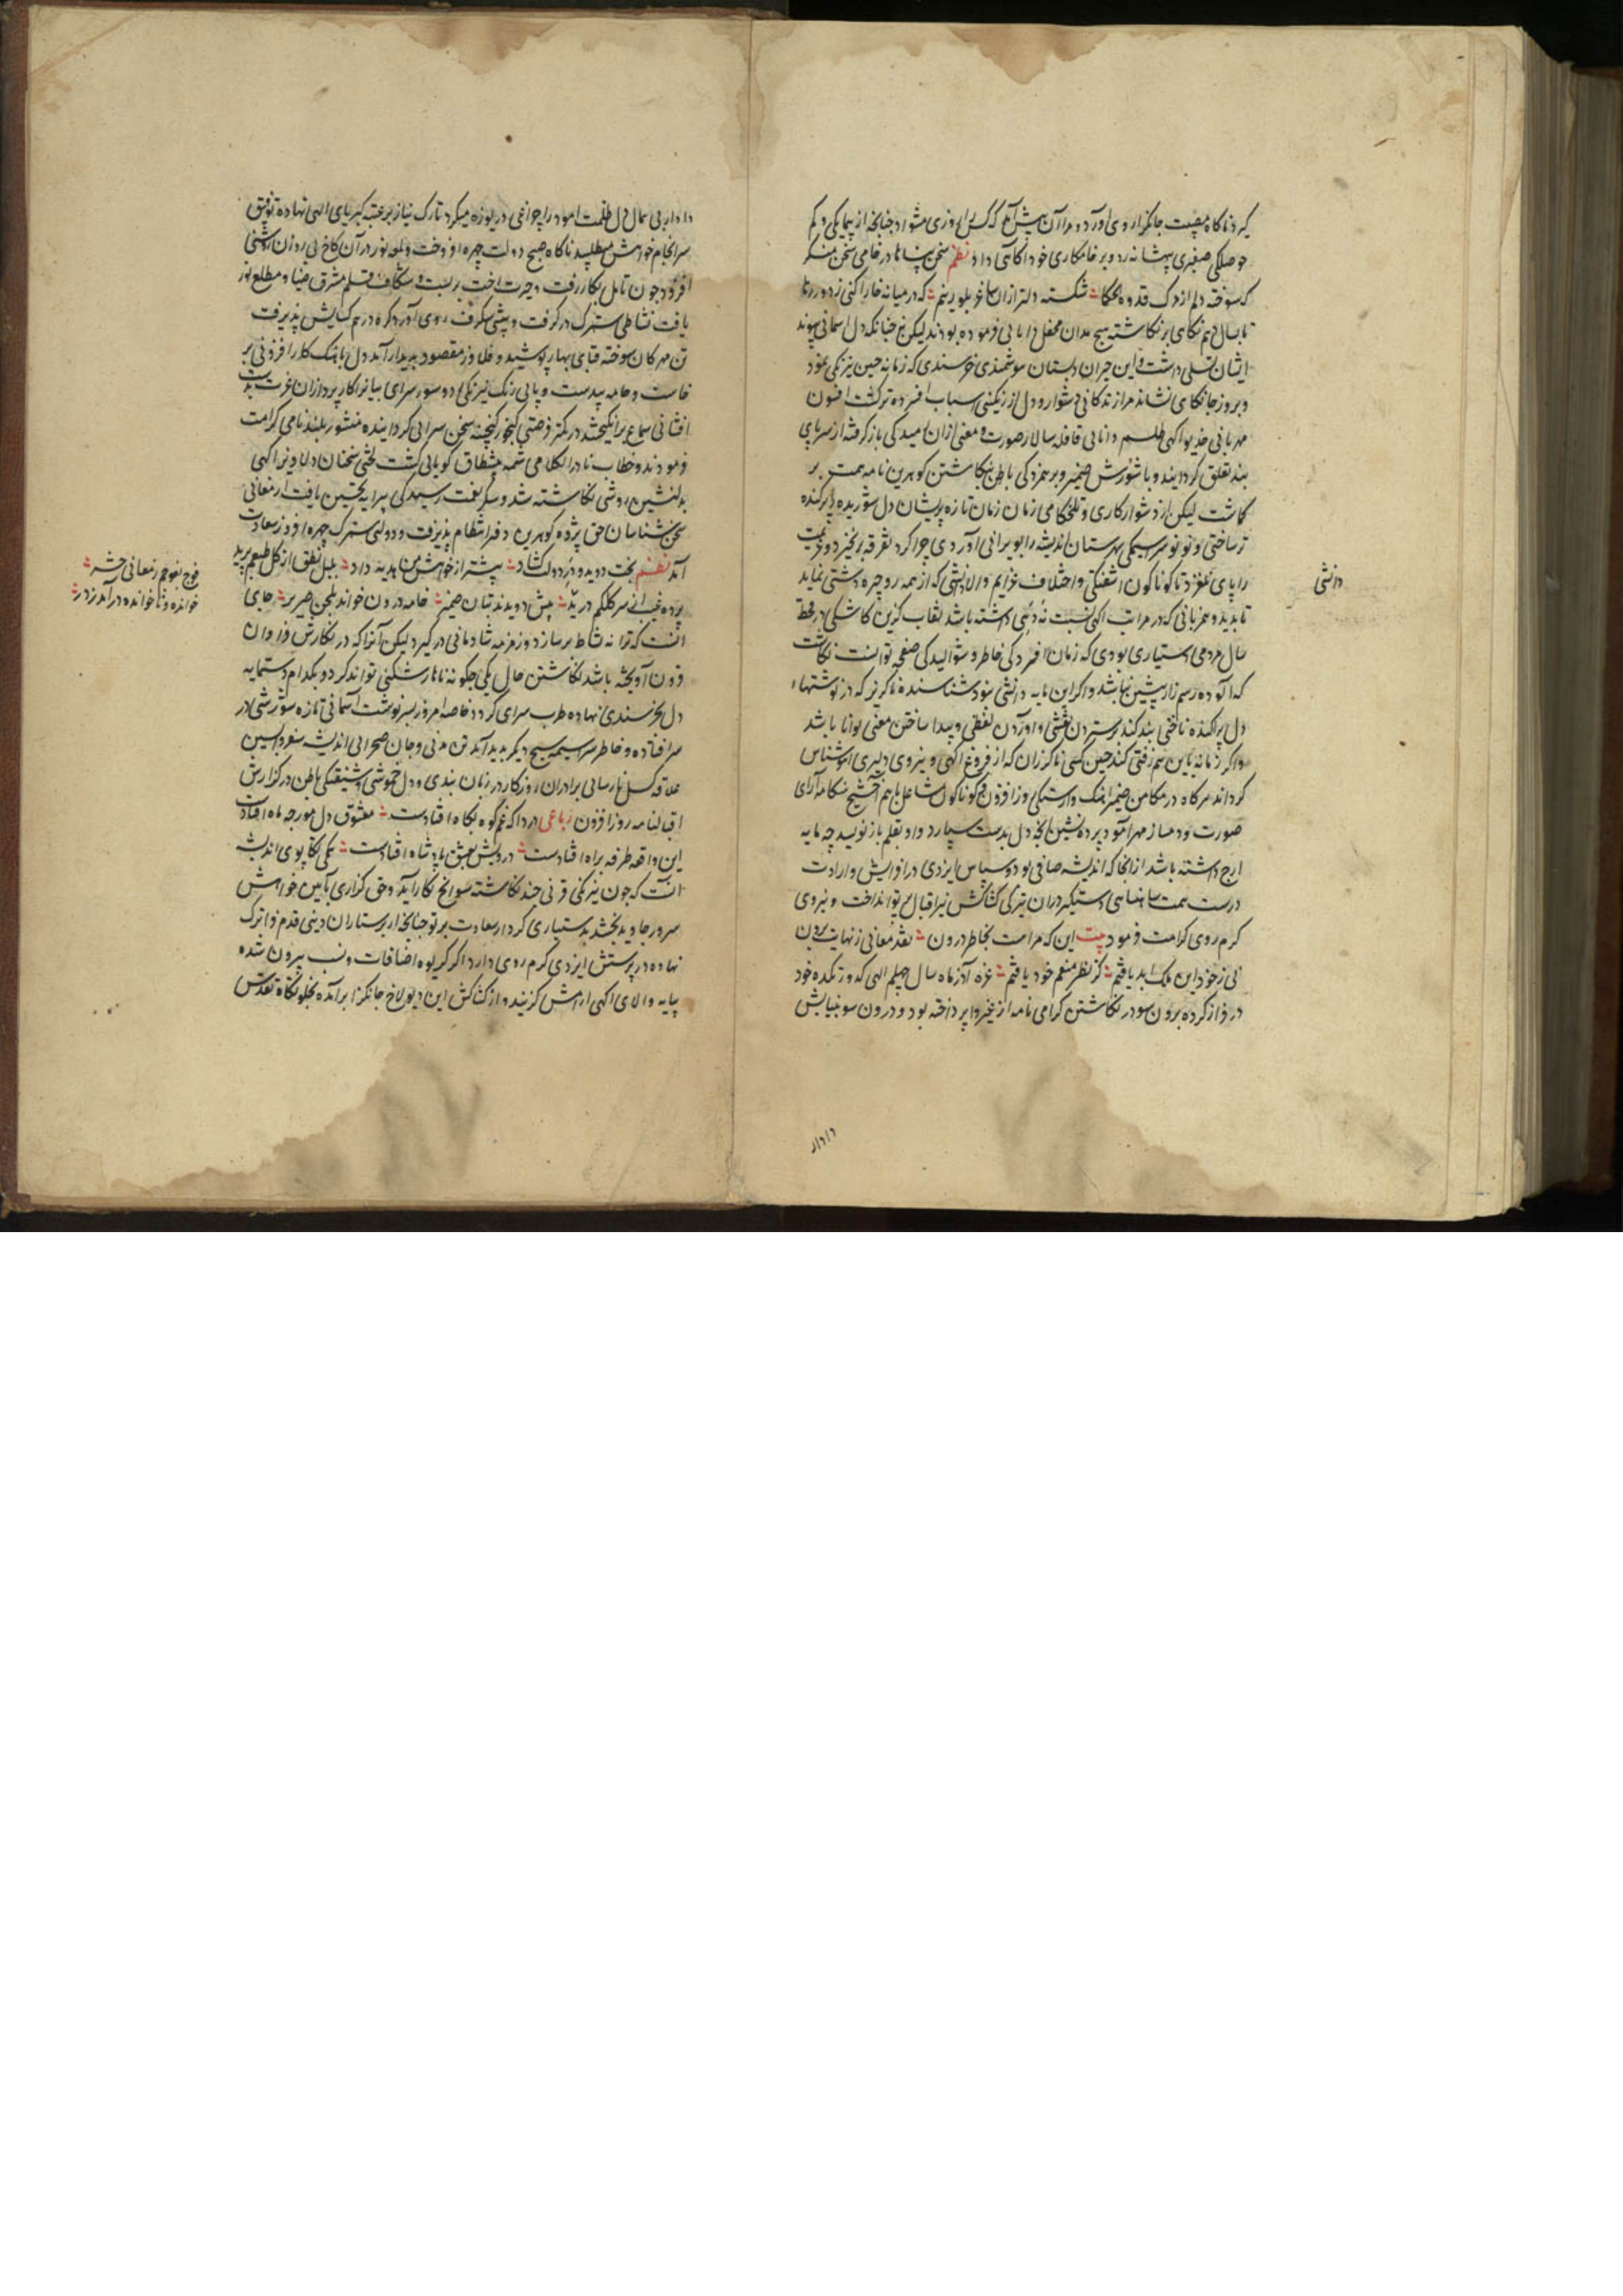 کیرد ناکاه مصیبت جانکزا روی آورد و مرا آن پیش آمد که کس را روزی مشواد چنانچه از پیمایکی و کم
حوصلکی صفیری پیشانه زد و بر خامکاری خود آکاهی داد نظم سخن پناها در خامی سخن منکر
که سوخته دلم از مرک قدوه الحکما شکسته دلتر از ان ساغر بلورینم که در میانه خارا کنی ز دور رها
تا بسال دهم نکای بر نکاشته هیچ مدان محفل دانایی فرموده بودند لیکن نیز چنانکه دل آسمانی پیوند
ایشان تسلی داشت و این حیران دبستان هوشمندی خرسندی که زمانه چنین نیرنکی نمود
و بروز جانکاهی نشاند مرا زندکانی دشوار و دل از رنکینی اسباب افسرده تر کشت افسون
مهربانی خدیو آکهی طلسم دانایی قافله سالار صورت و معنی از ان نومیدکی باز کرفته از سر پای
بند تعلق کردانید و با شورش ضمیر و بر همزدکی باطن بنکاشتن کوهرین نامه همت بر
کماشت لیکن از دشوارکاری و تلخکامی زمان زمان تازه پریشان دل شوریده را پراکنده
تر ساختی و نو نو سراسیمکی بهرستان اندیشه را بویرانی آوردی چرا کرد تفرقه برنخیزد و عزیمت
را پای نلغزد تا کوناکون آشفتکی و اختلاف عزایم و الا دانشی که از همه رو چیره دستی نماید
دانشی
تا بدید و همزبانی که در مراتب آکهی نسبت نه دهی داشته باشد نقاب کزین کاشکی در قحط
سال مردمی دستیاری بودی که زمان افسردکی خاطر و شولیدکی صفحه توانست نکاشت
که آلوده رسم زار پیشین نباشد و اکر این مایه دانشی نبود شناسنده ناکزیر که در نوشتها
دل پراکنده ناخنی بند کند و ستردن نقشی و آوردن لفظی و پیدا ساختن معنی توانا باشد
و اکر زمانه باین هم نرفتی کند چنین کسی ناکزران که از فروغ آکهی و نیروی دلیری آموشناس
کرداند هرکاه در مکامن ضمیر آهنک وارستکی روز افزون و کوناکون مشاغل با هم آخشیج هنکامه آرای
صورت و دمساز مهرآمود پرده نشین انچه دل بدست سپارد و او بقلم باز نویسد چه مایه
ارج داشته باشد از انجا که اندیشه صافی بود و سپاس ایزدی در افزایش و ارادت
درست همت شاهنشاهی دستکیر در ان تیرکی کشاکش نیر اقبال پرتو انداخت و نیروی
کرم روی کرامت فرمود بیت این که مراست بخاطر درون نقد معانی ز نهایت برون
نی ز خود این ملک ابد یافتم کز نظر منعم خود یافتم غره آذر ماه سال چهلم الهی که در تنکده خود
در فراز کرده برون سو در نکاشتن کرامی نامه از غیر وا پرداخته بود و درون سو بنیایش
دادار
دادار بی همال دل ظلمت آمود را چراغی دریوزه میکرد تارک نیاز بر عتبه کبریای الهی نهاده توفیق
سرانجام خواهش میطلبید ناکاه صبح دولت چهره افروخت و لمعه نور در آن کاخ بی روزن روشنی
افزود چون تامل بکار رفت و حیرت رخت بر بست و شکاف قلم مشرق ضیا و مطلع نور
یافت نشاطی سترک در کرفت و پیشی شکرف روی آورد کره در هم کشایش پذیرفت
تن مهرکان سوخته قبای بهار پوشید و قلاوز مقصود پدیدار آمد دل را بانک کار افزونی بر
خاست و خامه بیدست و پای رنک نیرنکی دو سو سرای بنیاز کار پردازان غرب دست
افشانی سماع بر انکیختند در کمتر فرصتی کنجور کنجینه سخن سرایی کردانیده منشور بلندنامی کرامت
فرمودند و خطاب نادر الکلامی ضمیمه منطاق کویایی کشت لختی سخنان دلاویز آکهی
بدلنشین روشی نکاشته شد و شکرف نعمت رسیدکی پیرایه تحسین یافت ارمغانی
سخن شناسان حق پژوه کوهرین دفتر انتظام پذیرفت و دولتی سترک چهره افروز سعادت
آمد نظم بخت دوید و در دولت کشاد پیشتر از خواهش من هدیه داد بلبل نطق از کل طبعم پرید
پرده غیب از سر کلکم درید پیش دویدند بتان ضمیر خامه درون خواند بلحن صریر جای
فوج بفوجم ز معانی حشر
خوانده و ناخوانده در آمد ز در
آنست که ترانه نشاط بر سازد و زمزمه شادمانی در کیرد لیکن آنرا که در نکارش فراوان
قرون آویخته باشد نکاشتن حال یکی چکونه ناهار شکنی تواند کرد و بکدام دستمایه
دل بخرسندی نهاده طرب سرای کردد خاصه امروز بسرنوشت آسمانی تازه شورشی در
سر افتاده و خاطر سراسیمه بسیچ دیکر پدید آمد تن مدنی و جان صحرایی اندیشه سفر واپسین
علاقه کسل نارسائی برادران روزکار در زبان بندی و دل خموشی و شیفتکی باطن در کزارش
اقبالنامه روز افزون رباعی دردا که غم کوه بکاه افتادست معشوق دل مورچه ماه افتاد
این واقعه طرفه براه افتادست درویش بعشق پادشاه افتادست همکی تکاپوی اندیشه
آنست که چون نیرنکی قرنی چند نکاشته سوانح نکار آید و حق کزاری بآیین خواهش
سرور جاوید بخشد بدستیاری کردار سعادت پرتو چنانچه از پرستاران دینی قدم فراترک
نهاده در پرستش ایزدی کرم روی دارد اکر کریوه اضافات و نسب بیرون شده
بپایه والای آکهی آرامش کزیند و از کشاکش این دیولاخ جانکزا بر آمده بخلوتکاه تقدس